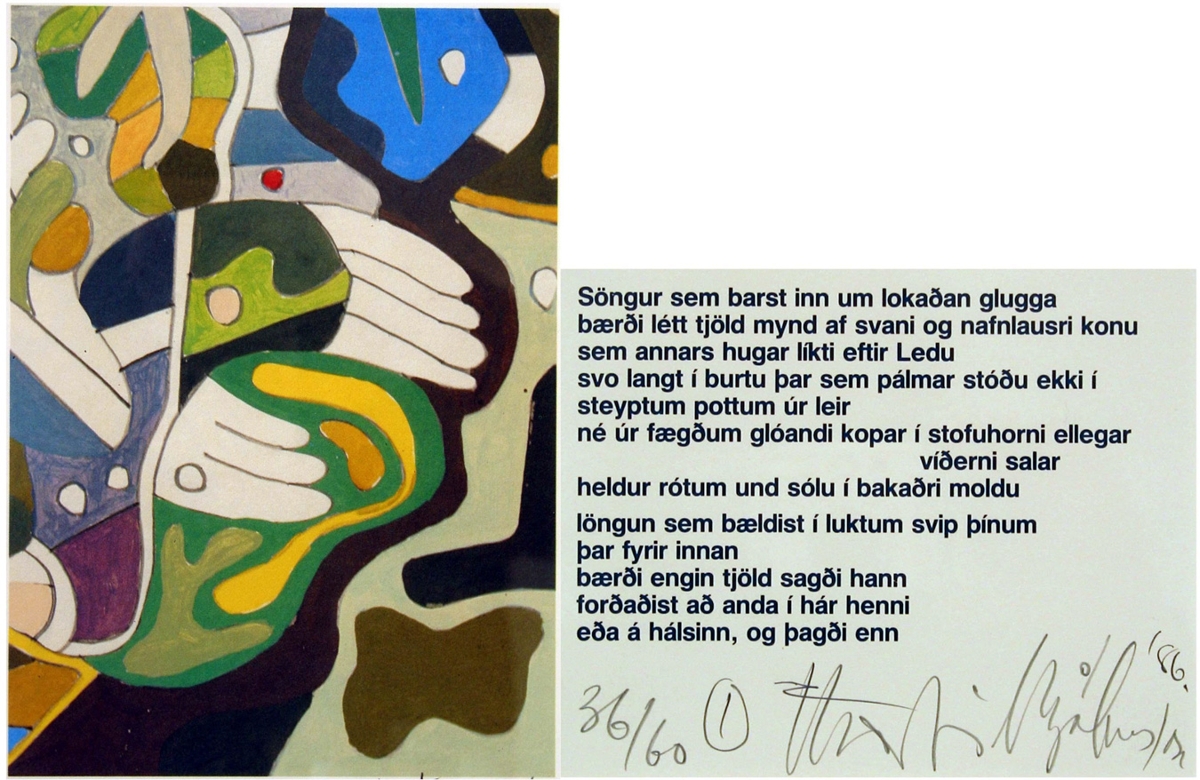 Söngur sem barst inn um lokaðan glugga
bærði létt tjöld mynd af svani og nafnlausri konu
sem annars hugar líkti eftir Ledu
svo langt í burtu þar sem pálmar stóðu ekki í
steyptum pottum úr leir
né úr fægðum glóandi kopar í stofuhorni ellegar
víðerni salar
heldur rótum und sólu í bakaðri moldu
löngun sem bældist í luktum svip þínum
þar fyrir innan
bærði engin tjöld sagði hann
forðaðist að anda í hár henni
eða á hálsinn, og þagði enn
'86.
36/60 1